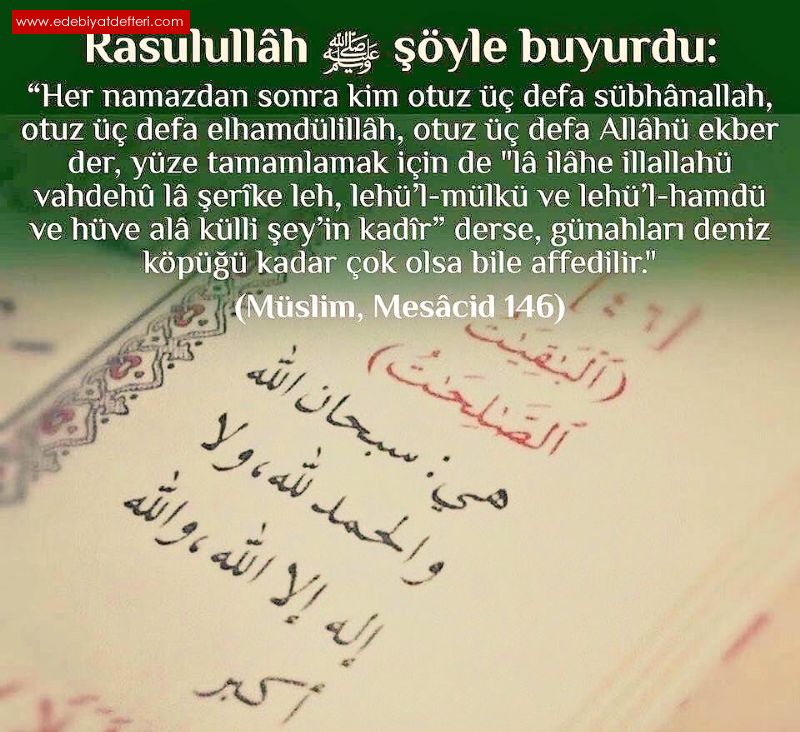 www.edebiyatdefteri.com
Rasulullâh ﷺ şöyle buyurdu:
“Her namazdan sonra kim otuz üç defa sübhânallah,
otuz üç defa elhamdülillâh, otuz üç defa Allâhü ekber
der, yüze tamamlamak için de "lâ ilâhe illallahü
vahdehû lâ şerîke leh, lehü’l-mülkü ve lehü’l-hamdü
ve hüve alâ külli şey’in kadîr” derse, günahları deniz
köpüğü kadar çok olsa bile affedilir."
(Müslim, Mesâcid 146)
[٤٦]
(ٱلۡبَٰقِيَٰتُ
ٱلصَّٰلِحَٰتُ)
هي: سبحان الله
والحمد لله، ولا
إله إلا الله، والله
أكبر